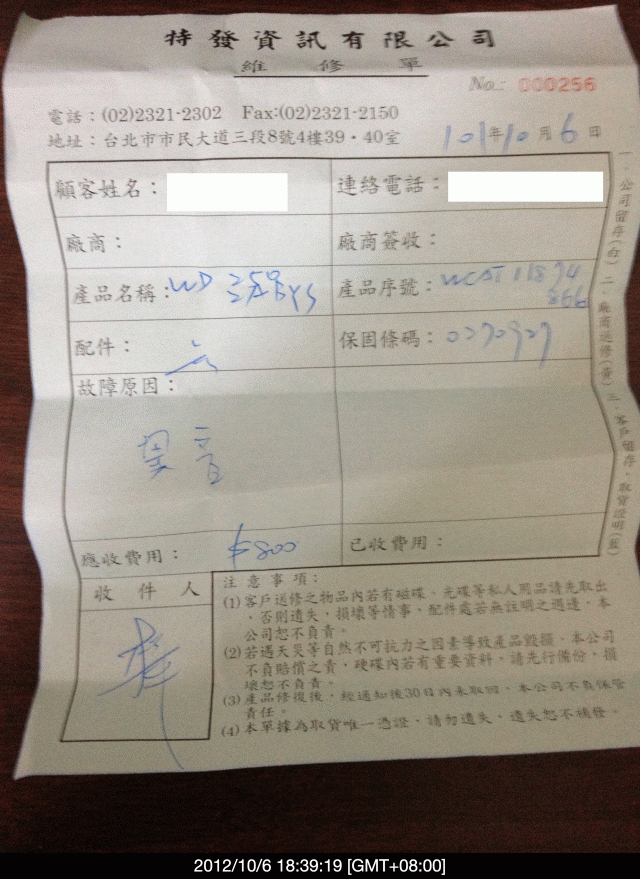 特發資訊有限公司
維修單
No.: 000256
電話：(02)2321-2302 Fax:(02)2321-2150
地址：台北市市民大道三段8號4樓39・40室
101年10月6日
顧客姓名：
連絡電話：
廠商：
廠商簽收：
產品名稱：WD
產品序號：WCAT11894
866
配件：
保固條碼：0270927
故障原因：
異音
應收費用：$800
已收費用：
收件人
注意事項：
(1)客戶送修之物品內若有磁碟、光碟等私人用品請先取出
，否則遺失，損壞等情事、配件處若無註明之週邊，本
公司恕不負責。
(2)若遇天災等自然不可抗力之因素導致產品毀損、本公司
不負賠償之責，硬碟內若有重要資料，請先行備份，損
壞恕不負責。
(3)產品修復後，經通知後30日內未取回，本公司不負保管
責任。
(4)本單據為取貨唯一憑證，請勿遺失，遺失恕不補發。
一、公司留存(白) 二、廠商送修(黃) 三、客戶留存、取貨證明(藍)
2012/10/6 18:39:19 [GMT+08:00]